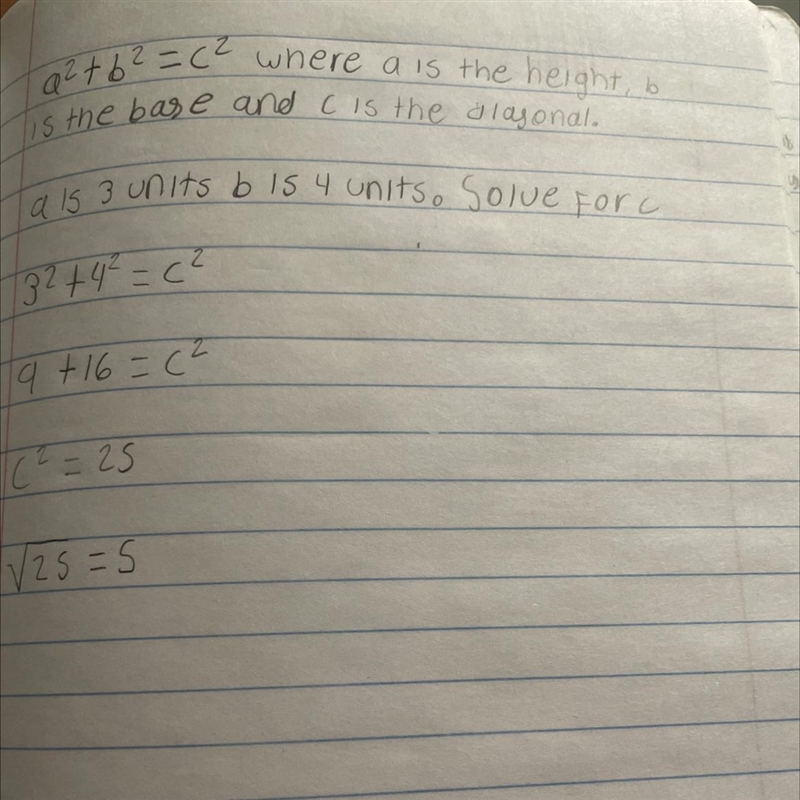 a² + b² = c² where a is the height, b
is the base and c is the diagonal.
a is 3 units b is 4 units. Solve for c
3² + 4² = c²
9 + 16 = c²
c² = 25
√25 = 5